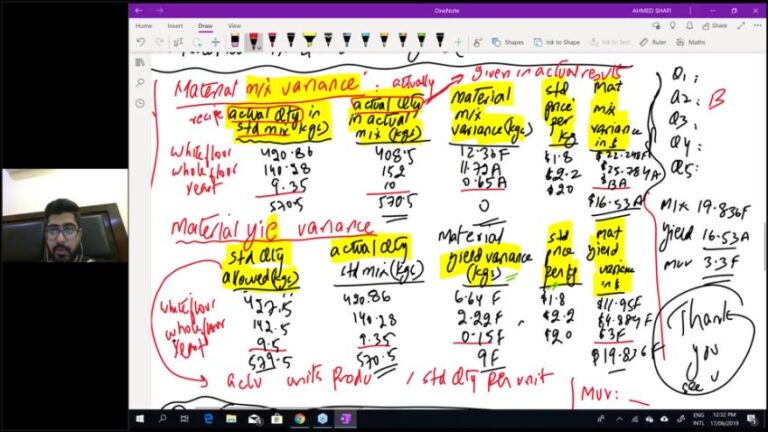 OneNote
AHMED SHAFI
File Home Insert Draw View
Shapes
Ink to Shape
Ink to Text
Ruler
Maths
Material mix variance : actually
given in actual results
recipe
actual Qty in
std mix (kgs)
actual Qty
in actual
mix (kgs)
Material
mix
variance (kgs)
std
price
per
kg
mat
mix
variance
in $
white flour 420.86 408.5 12.36 F $1.8 $22.248 F
whole flour 140.28 152 11.72 A $2.2 $25.784 A
yeast 9.35 10 0.65 A $20 $13 A
570.5 570.5 0 $16.53 A
Material yie variance
std Qty
allowed (kgs)
actual Qty
std mix (kgs)
Material
yield variance
(kgs)
std
price
per kg
mat
yield
variance
in $
white flour 427.5 420.86 6.64 F $1.8 $11.95 F
whole flour 142.5 140.28 2.22 F $2.2 $4.884 F
yeast 9.5 9.35 0.15 F $20 $3 F
579.5 570.5 9 F $19.836 F
actu units Produ / std Qty per unit
MUV:
Q1:
Q2: B
Q3:
Q4:
Q5:
Mix 19.836 F
yield 16.53 A
MUV 3.3 F
Thank
you
see u
ENG
INTL
12:32 PM
17/06/2019